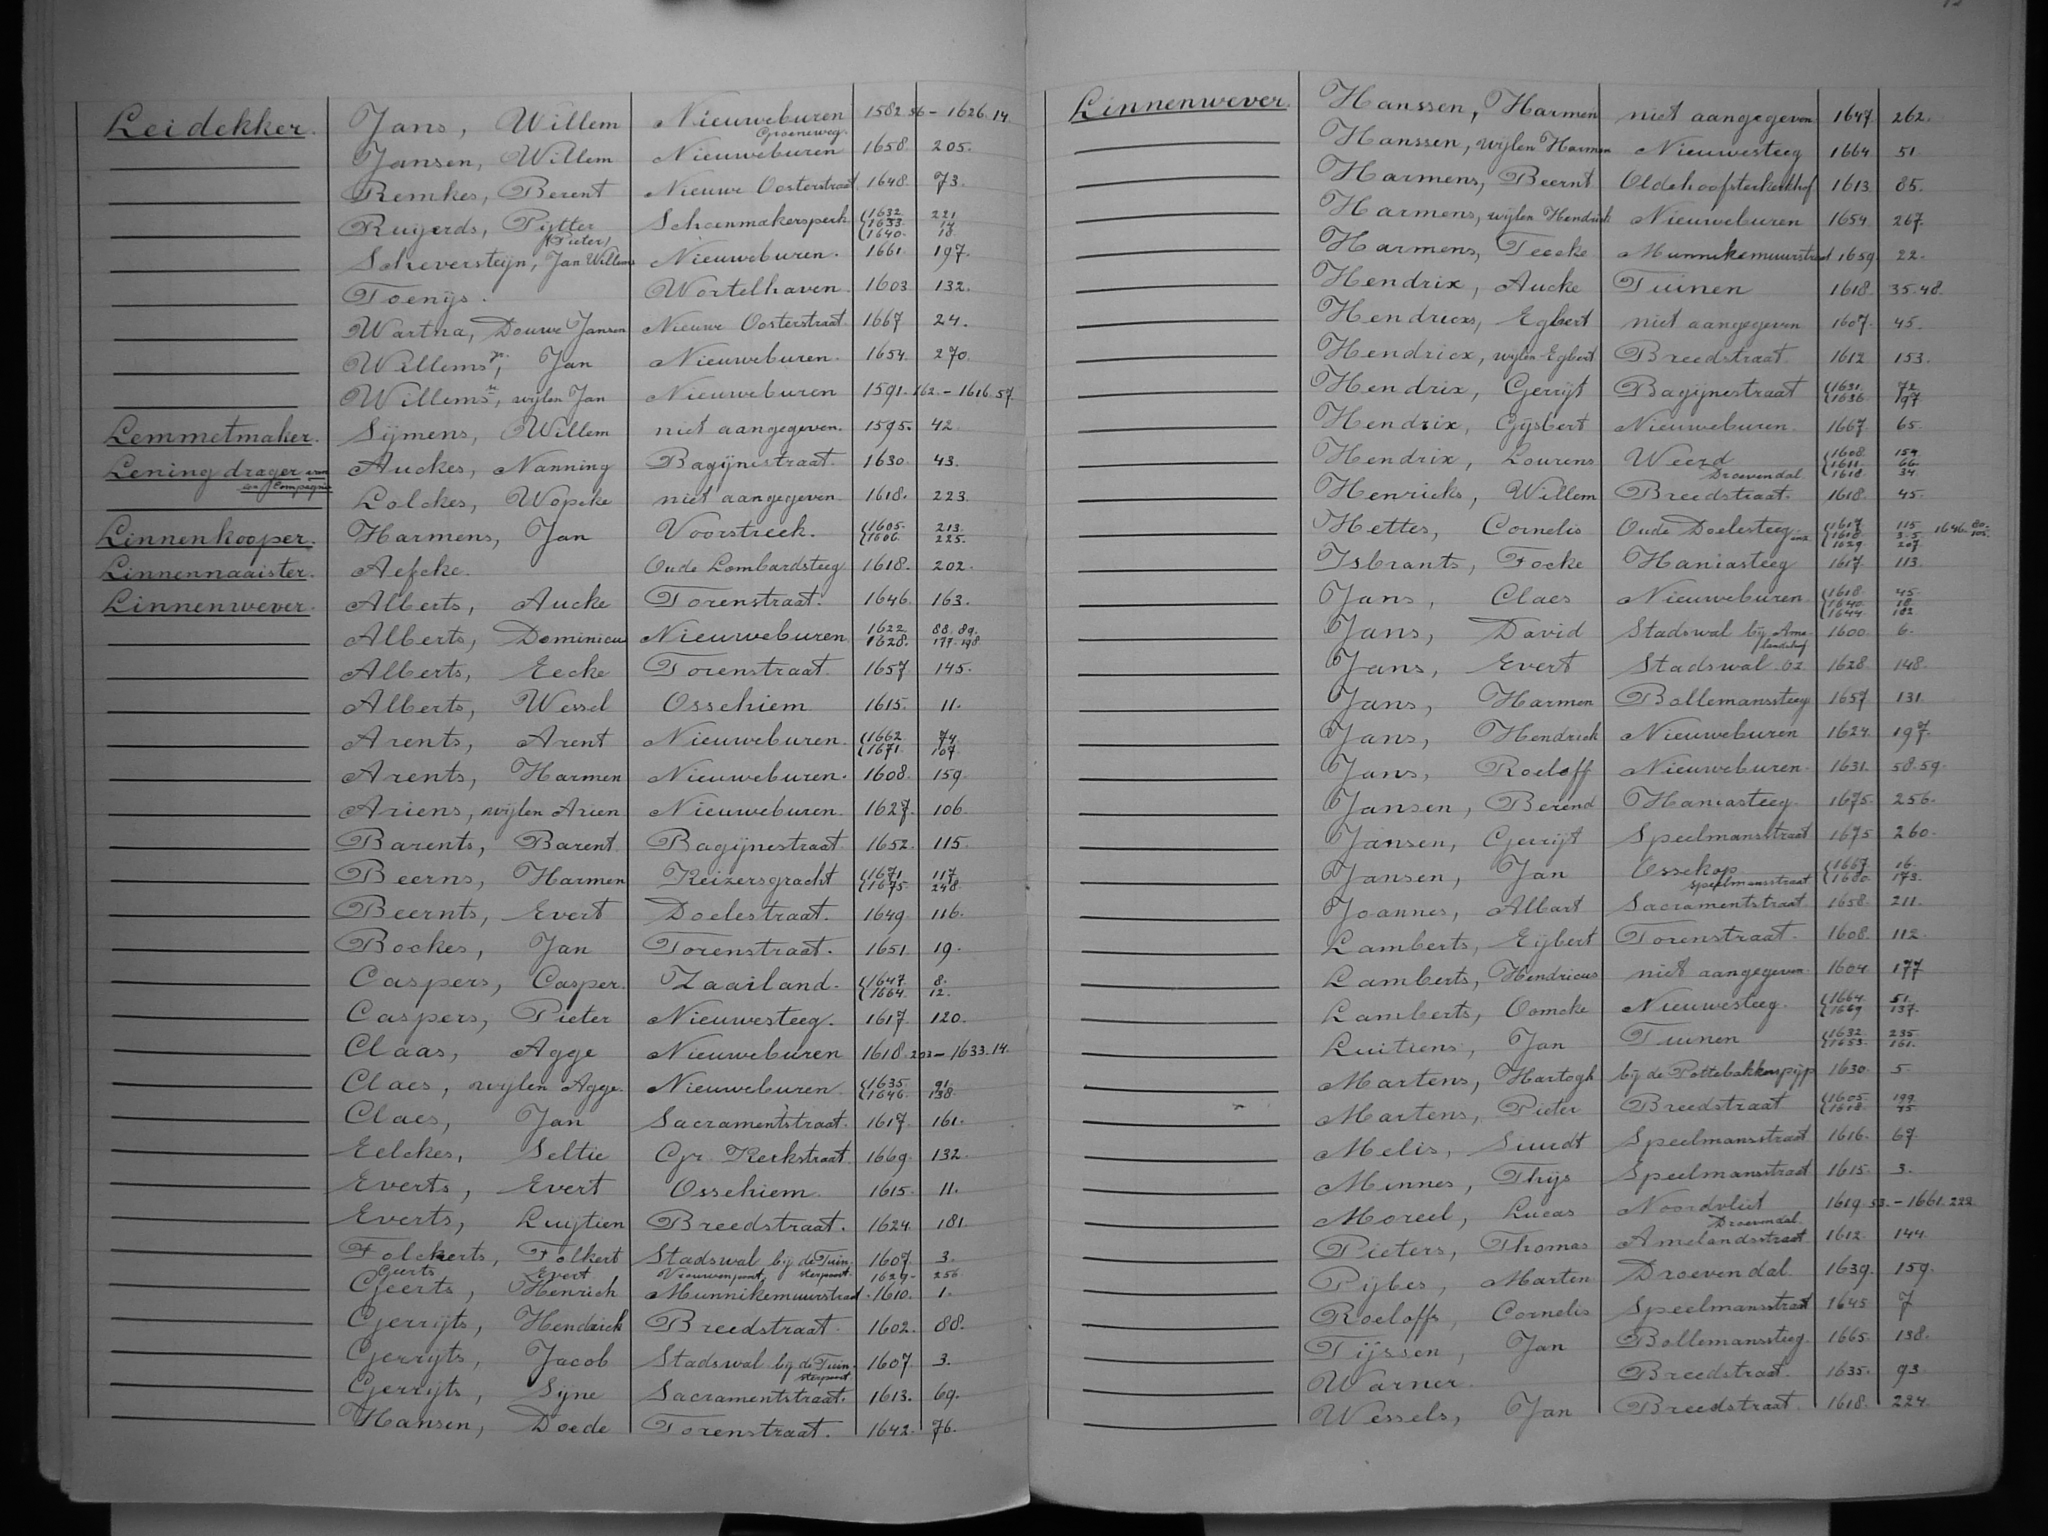 Leidekker. Jans, Willem Nieuweburen 1582.56 – 1626.14.
Groeneweg.
Jansen, Willem Nieuweburen 1658. 205.
Remkes, Berent Nieuwe Oosterstraat 1648. 73.
Ruijerds, Pijtter Schoenmakersperk 1632. 221
(Pieter) 1633. 14
1640. 18
Scheversteijn, Jan Willems Nieuweburen. 1661. 197.
Toenijs. Wortelhaven. 1603 132.
Wartna, Douwe Jansen Nieuwe Oosterstraat. 1667 24.
Willems jr., Jan Nieuweburen. 1654. 270.
Willems sr, wijlen Jan Nieuweburen 1591.162. – 1616.57.
Lemmetmaker. Sijmens, Willem niet aangegeven. 1595. 42.
Lening drager Auckes, Nanning Bagijnestraat. 1630. 43.
Compagnie
Lolckes, Wopcke niet aangegeven. 1618. 223.
Linnenkooper. Harmens, Jan Voorstreek. 1605. 213.
1606. 225.
Linnennaaister. Aefcke. Oude Lombardsteeg 1618. 202.
Linnenwever. Alberts, Aucke Torenstraat. 1646. 163.
Alberts, Dominicus Nieuweburen 1622. 88. 89.
1628. 177. 198.
Alberts, Eecke Torenstraat. 1657 145.
Alberts, Wessel Ossehiem 1615. 11.
Arents, Arent Nieuweburen. 1662. 74.
1671. 107.
Arents, Harmen Nieuweburen. 1608. 159.
Ariens, wijlen Arien Nieuweburen 1627. 106.
Barents, Barent. Bagijnestraat. 1652. 115.
Beerns, Harmen Keizersgracht 1671. 117
1675. 248
Beernts, Evert Doelestraat. 1649. 116.
Bockes, Jan Torenstraat. 1651. 19.
Caspers, Casper. Zaailand. 1647. 8.
1664. 12.
Caspers, Pieter Nieuwesteeg. 1617 120.
Claas, Agge Nieuweburen 1618.203 – 1633.14.
Claes, wijlen Agge. Nieuweburen. 1635. 91.
1646. 138.
Claes, Jan Sacramentstraat. 1617. 161.
Eelckes, Seltie Gr. Kerkstraat. 1669. 132.
Everts, Evert Ossehiem 1615. 11.
Everts, Luijtien Breedstraat. 1624 181.
Folckerts, Folkert Stadswal bij de Tuin- 1607. 3.
sterpoort.
Geerts Evert Vrouwenpoort, 1629. 256
Geerts, Henrich Munnikemuurstraat. 1610. 1.
Gerrijts, Hendrick Breedstraat. 1602. 88.
Gerrijts, Jacob Stadswal bij de Tuin- 1607 3.
sterpoort.
Gerrijts, Sijne Sacramentstraat. 1613. 69.
Hansen, Doede Torenstraat. 1642. 76.
Linnenwever. Hanssen, Harmen niet aangegeven 1647. 262.
Hanssen, wijlen Harmen Nieuwesteeg 1664 51
Harmens, Beernt Oldehoofsterkerkhof 1613. 85.
Harmens, wijlen Hendrick Nieuweburen 1654 267.
Harmens, Teecke Munnikemuurstraat 1659. 22.
Hendrix, Aucke Tuinen 1618. 35.48.
Hendricxs, Egbert niet aangegeven 1607. 45.
Hendricx, wijlen Egbert Breedstraat. 1612 153.
Hendrix, Gerrijt Bagijnestraat 1631. 72
1636. 197
Hendrix, Gijsbert Nieuweburen. 1667. 65.
Hendrix, Lourens Weerd 1608. 154.
1611. 66.
Droevendal. 1618. 34.
Henricks, Willem Breedstraat. 1618. 45.
Hettes, Cornelis Oude Doelesteeg 1617. 115 1646. 80.
1618. 3.5 105.
1629. 207
Isbrants, Focke Haniasteeg 1617. 113.
Jans, Claes Nieuweburen. 1618. 45.
1640. 18.
1644. 182
Jans, David Stadswal bij Ame- 1600. 6.
landshof
Jans, Evert Stadswal. oz 1628. 148.
Jans, Harmen Bollemanssteeg 1657 131.
Jans, Hendrick Nieuweburen 1624. 197.
Jans, Roeloff Nieuweburen. 1631. 58.59.
Jansen, Berend Haniasteeg. 1675. 256.
Jansen, Gerrijt Speelmansstraat 1675 260.
Jansen, Jan Ossekop 1667. 16.
speelmansstraat 1680. 173.
Joannes, Albart Sacramentstraat. 1658. 211.
Lamberts, Eijbert Torenstraat. 1608. 112
Lamberts, Hendricus niet aangegeven. 1604. 177
Lamberts, Oomcke Nieuwesteeg. 1664. 51.
1669 137.
Luitiens, Jan Tuinen 1632. 235.
1653. 161.
Martens, Hartogh bij de Pottebakkerspijp 1630. 5
Martens, Pieter Breedstraat 1605. 199
1618. 45
Melis, Siurdt Speelmansstraat 1616. 67.
Minnes, Thijs Speelmansstraat 1615. 3.
Moreel, Lucas Noordvliet 1619.53. – 1661.222
Droevendal.
Pieters, Thomas Amelandsstraat 1612. 144.
Pijbes, Marten Droevendal. 1639. 159.
Roeloffs, Cornelis Speelmansstraat 1645 7
Tijssen, Jan Bollemanssteeg. 1665. 138.
Warner. Breedstraat. 1635. 93
Wessels, Jan Breedstraat. 1618. 224.